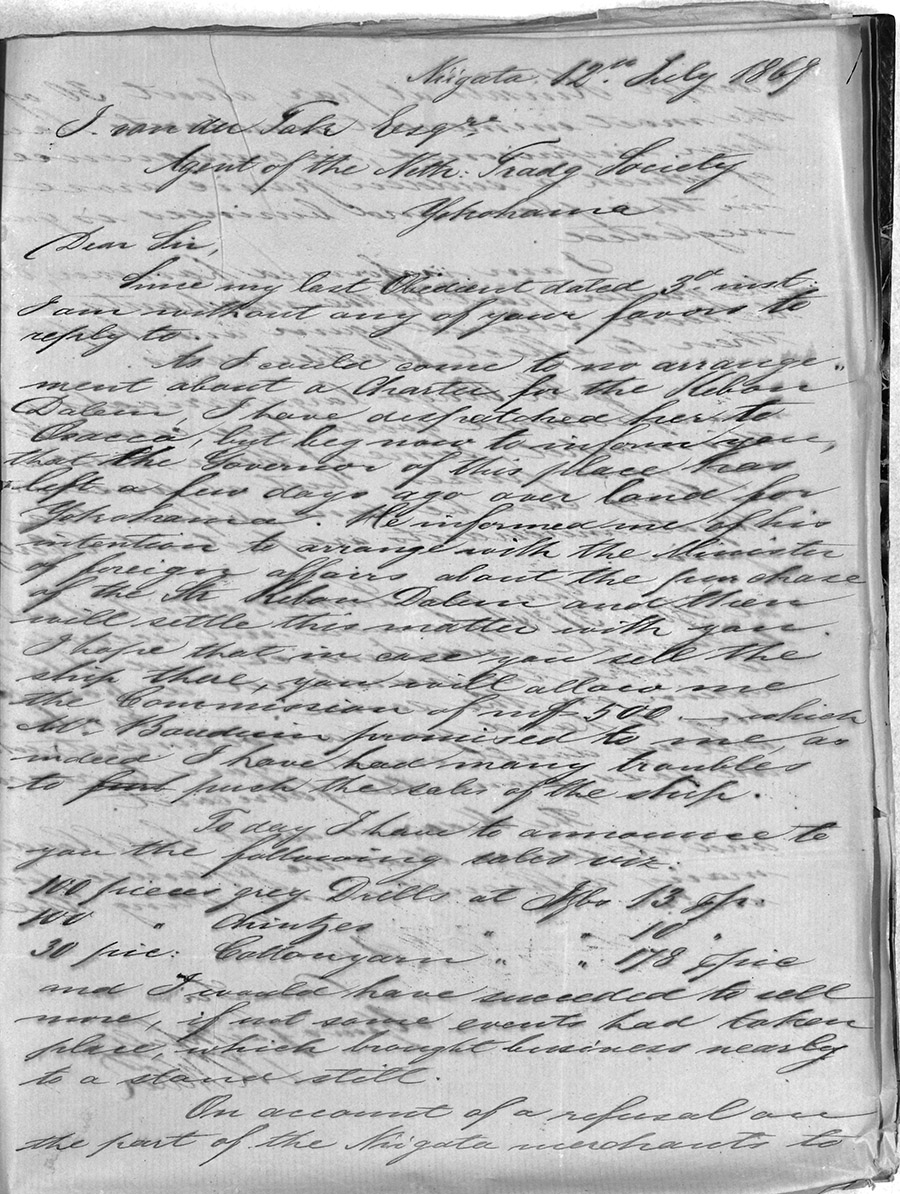 1
Niigata 12th July 1869
J. van der Tak Esqre
Agent of the Neth: Tradg Society
Yokohama
Dear Sir,
Since my last Obedient dated 3d inst.
I am without any of your favors to
reply to.
As I could come to no arrange-
ment about a Charter for the Kebon
Dalem, I have despatched her to
Osacca, but beg now to inform you,
that the Governor of this place has
left a few days ago over land for
Yokohama. He informed me of his
intention to arrange with the Minister
of foreign affairs about the purchase
of the Sh. Kebon Dalem and then
will settle this matter with you.
I hope that in case you sell the
ship there, you will allow me
the Commission of 500 which
Mr. Bauduin promised to me, as
indeed I have had many troubles
to push the sales of the ship.
To day I have to announce to
you the following sales viz:
100 pieces grey Drills at Itzbs 13 pr ps.
100 " Chintzes " " 10 "
30 pic: Cottonyarn " " 178 pr pic
and I would have succeeded to sell
more, if not some events had taken
place, which brought business nearly
to a stand still.
On account of a refusal on
the part of the Niigata merchants to